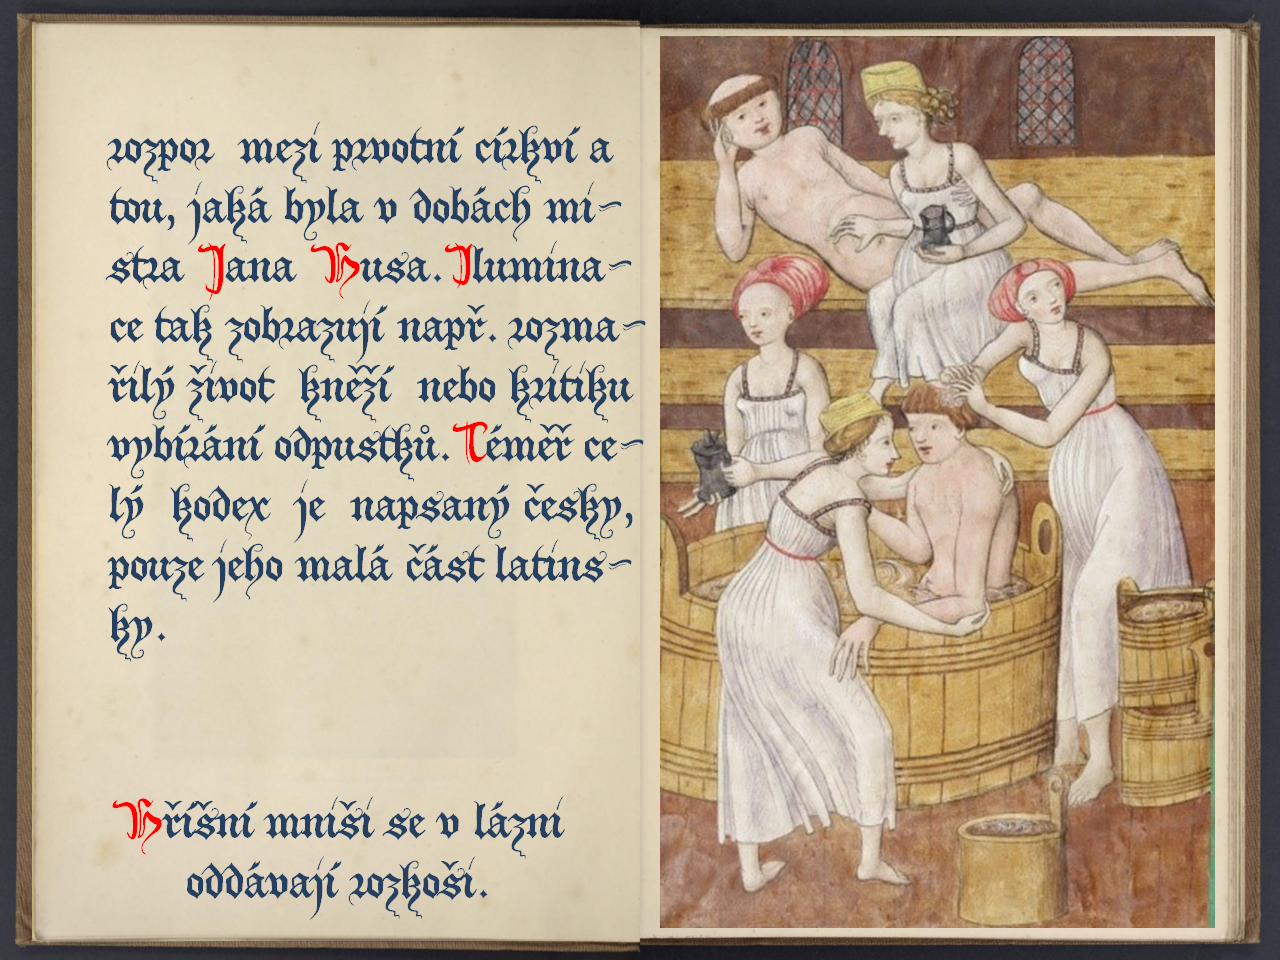 rozpor mezi prvotní církví a
tou, jaká byla v dobách mi-
stra Jana Husa. Ilumina-
ce tak zobrazují např. rozma-
řilý život kněží nebo kritiku
vybírání odpustků. Téměř ce-
lý kodex je napsaný česky,
pouze jeho malá část latins-
ky.
Hříšní mniši se v lázni
oddávají rozkoši.